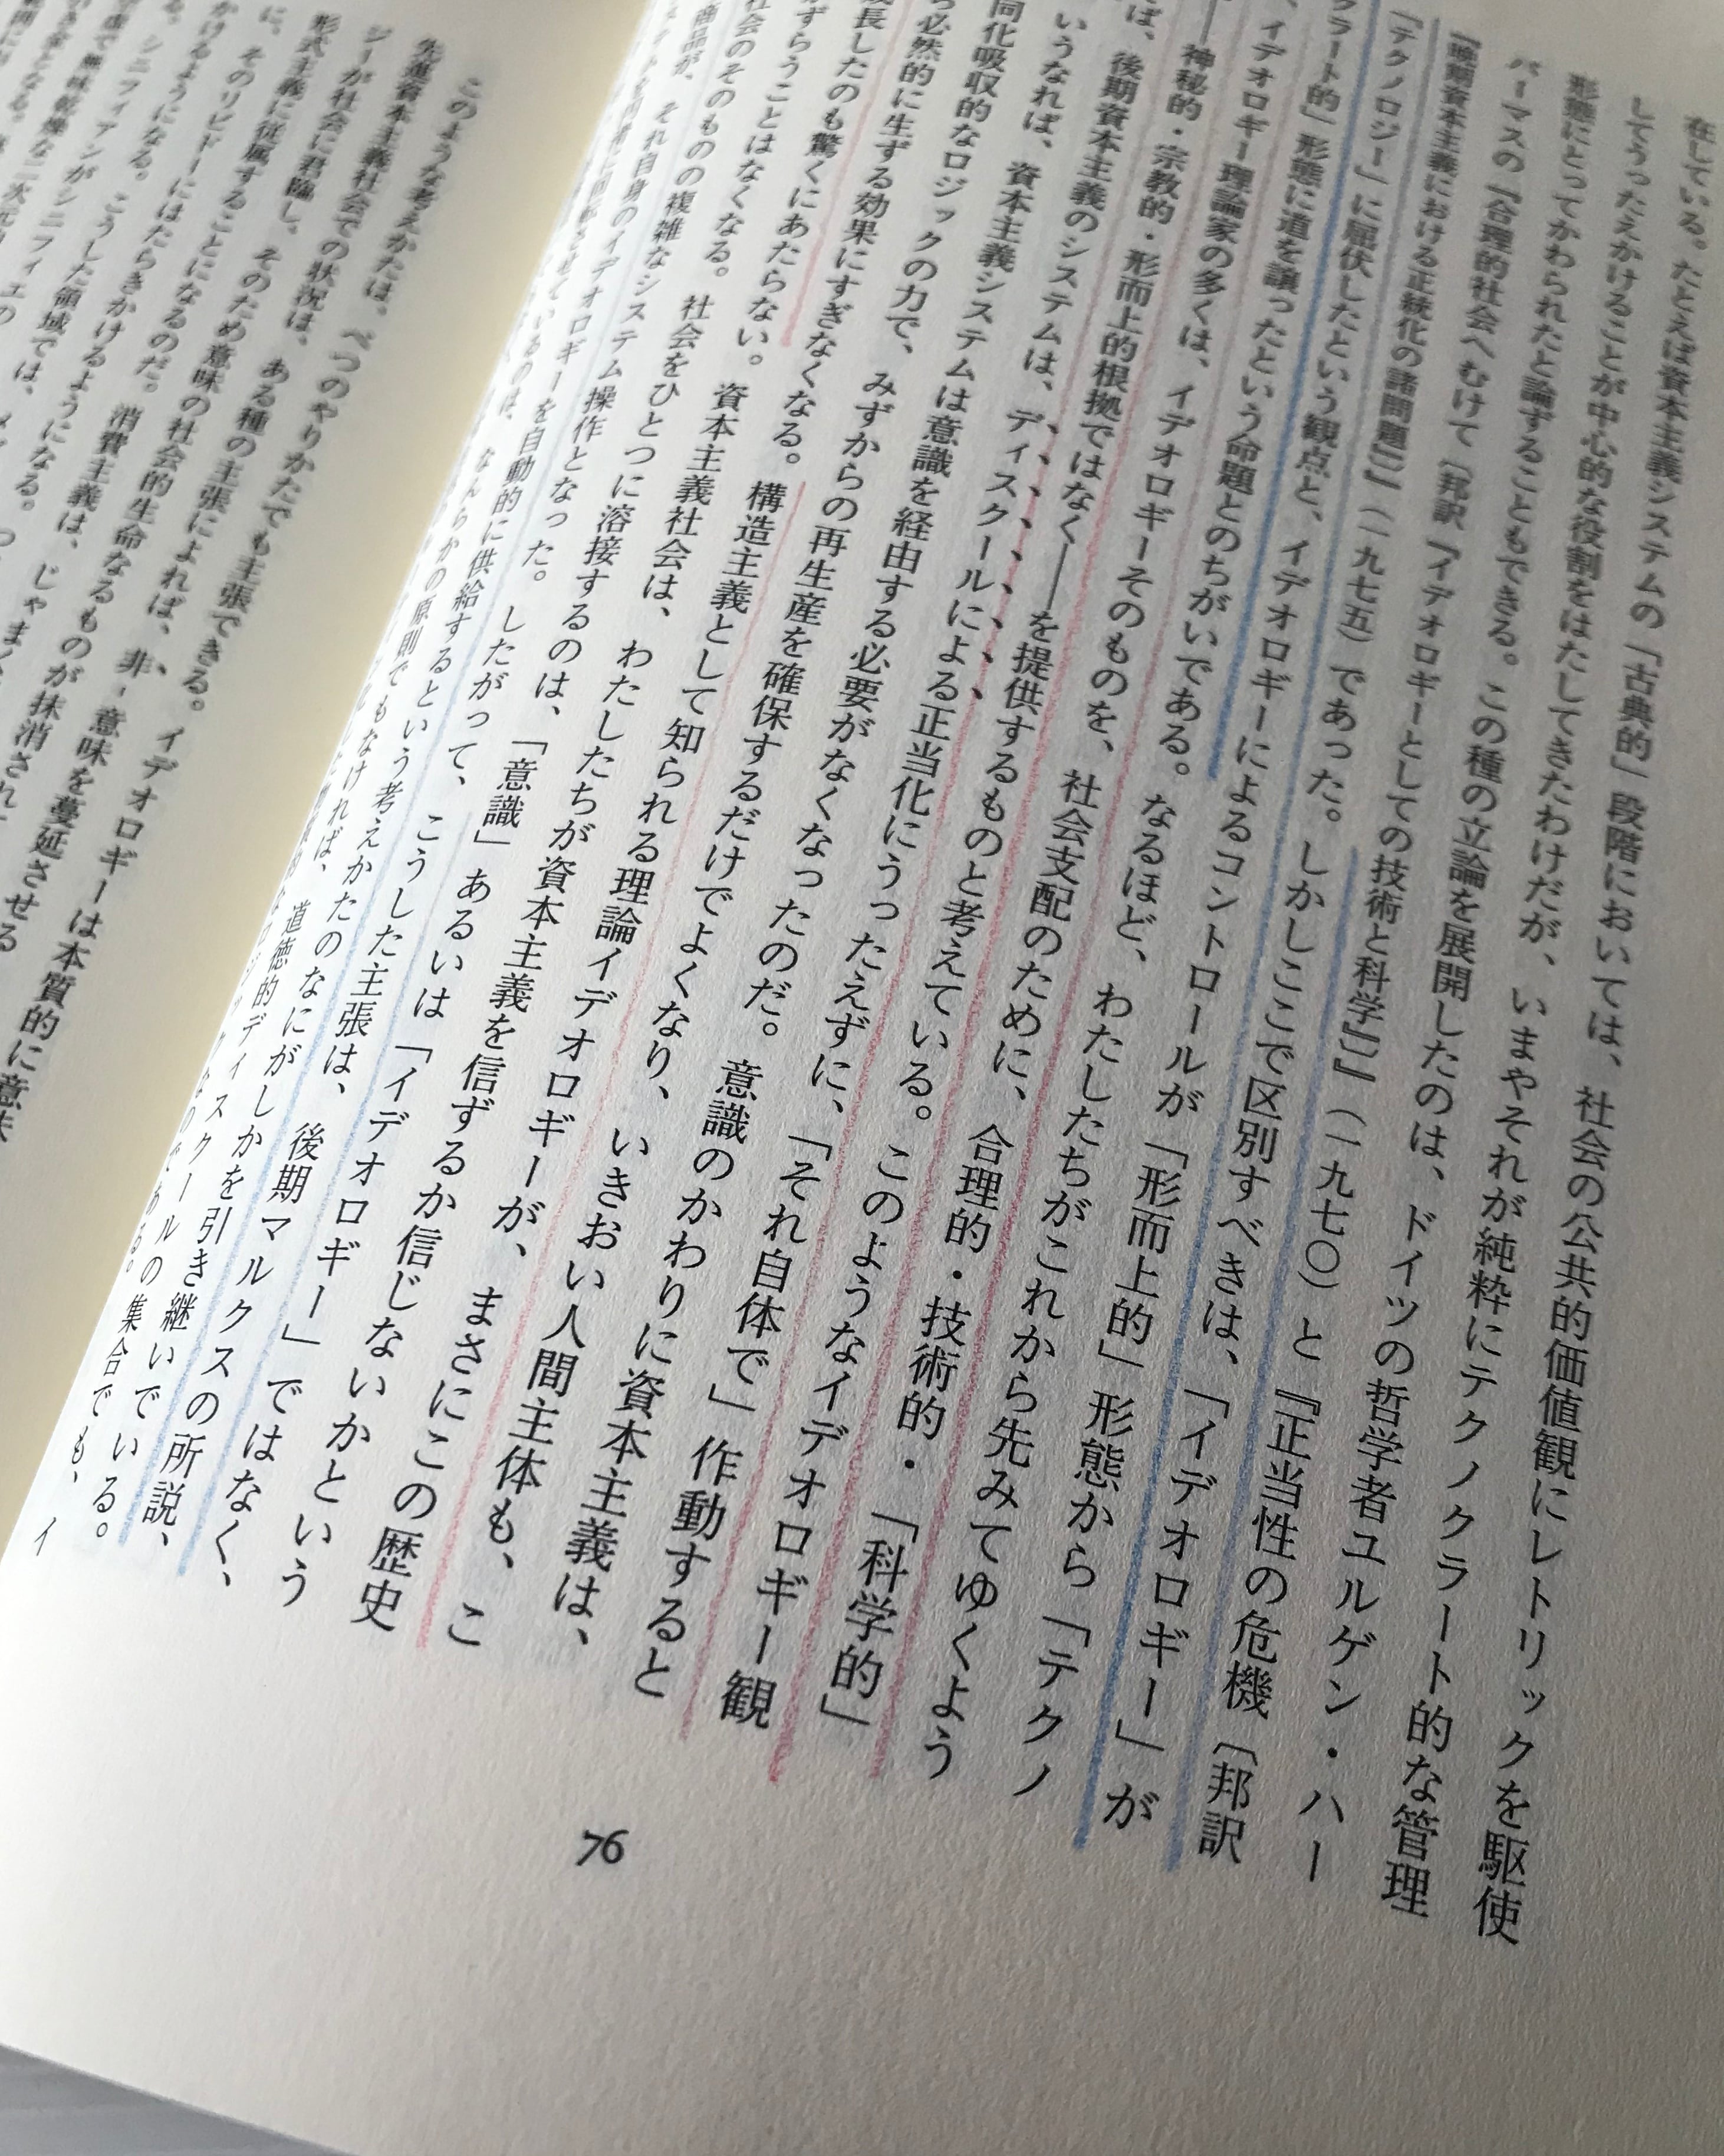 在している。たとえば資本主義システムの「古典的」段階においては、社会の公共的価値観にレトリックを駆使
してうったえかけることが中心的な役割をはたしてきたわけだが、いまやそれが純粋にテクノクラート的な管理
形態にとってかわられたと論ずることもできる。この種の立論を展開したのは、ドイツの哲学者ユルゲン・ハー
バーマスの『合理的社会へむけて〔邦訳『イデオロギーとしての技術と科学』〕』(一九七〇)と『正当性の危機〔邦訳
『晩期資本主義における正統化の諸問題』〕』(一九七五)であった。しかしここで区別すべきは、「イデオロギー」が
「テクノロジー」に屈伏したという観点と、イデオロギーによるコントロールが「形而上的」形態から「テクノ
クラート的」形態に道を譲ったという命題とのちがいである。なるほど、わたしたちがこれから先みてゆくよう
、イデオロギー理論家の多くは、イデオロギーそのものを、社会支配のために、合理的・技術的・「科学的」
――神秘的・宗教的・形而上的根拠ではなく――を提供するものと考えている。このようなイデオロギー観
ば、後期資本主義のシステムは、ディスクールによる正当化にうったえずに、「それ自体で」作動すると
いうなれば、資本主義システムは意識を経由する必要がなくなったのだ。意識のかわりに資本主義は、
同化吸収的なロジックの力で、みずからの再生産を確保するだけでよくなり、いきおい人間主体も、こ
ら必然的に生ずる効果にすぎなくなる。構造主義として知られる理論イデオロギーが、まさにこの歴史
成長したのも驚くにあたらない。資本主義社会は、わたしたちが資本主義を信ずるか信じないかという
ずらうことはなくなる。社会をひとつに溶接するのは、「意識」あるいは「イデオロギー」ではなく、
社会のそのものの複雑なシステム操作となった。したがって、こうした主張は、後期マルクスの所説、
商品が、それ自身のイデオロギーを自動的に供給するという考えかたのなにがしかを引き継いでいる。
76
このような考えかたは、べつのやりかたでも主張できる。イデオロギーは本質的に意味
先進資本主義社会での状況は、ある種の主張によれば、非‐意味を蔓延させる
ジーが社会に君臨し、そのため意味の社会的生命なるものが抹消され
形式主義に従属することになるのだ。消費主義は、じゃまく